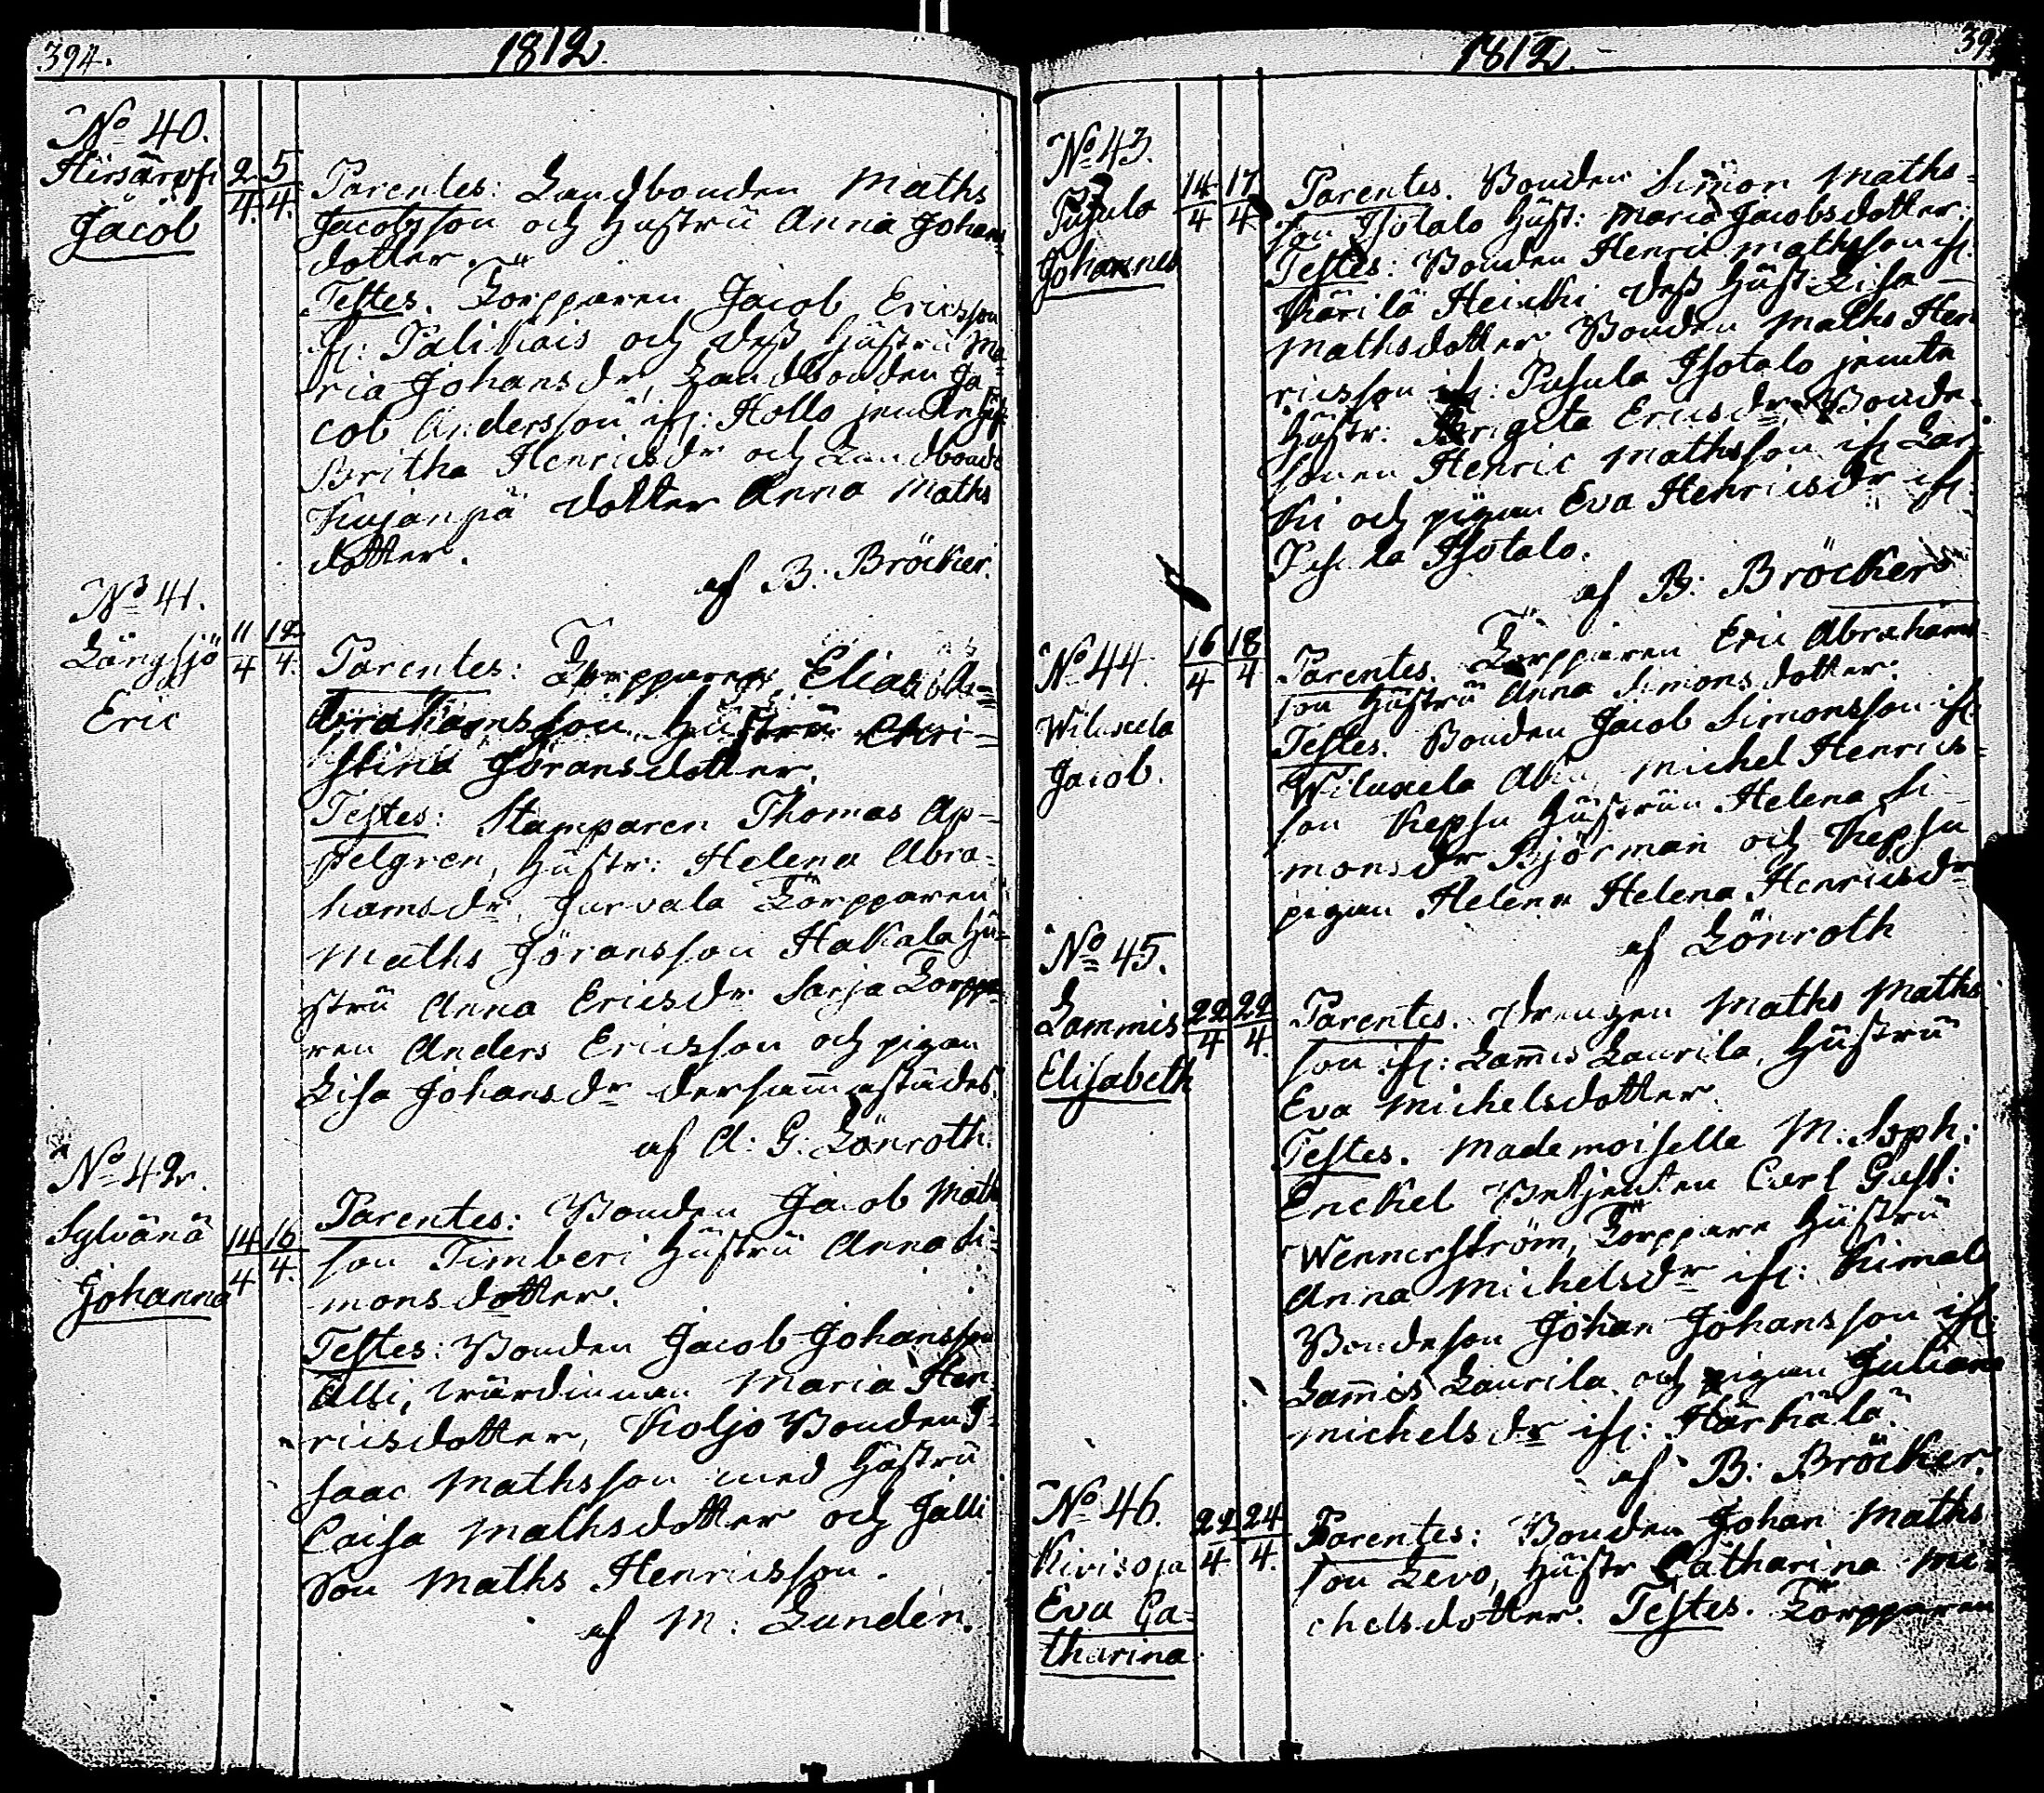 394.
1812.
No 40.
Hirsärvfi
Jacob
2/4. 5/4.
Parentes: Landbonden Maths
Jacobsson och Hustru Anna Johans
dotter.
Testes. Torpparen Jacob Ericsson
ifr: Palikais och dess Hustru Ma-
ria Johansdr, Landbonden Ja
cob Andersson ifr: Hollo jemte Hust
Britha Henricsdr och Landbond
Kujanpä dotter Anna Maths
dotter.
af B: Bröcker.
No 41.
Långsjö
Eric
11/4 12/4.
Parentes: Torpparen Elias A-
brahamsson Hustru Chri-
stina Göransdotter.
Testes: Stamparen Thomas Ap-
pelgren, Hustr: Helena Abra-
hamsdr. Jurvala Torpparen
Maths Göransson Hakala Hu-
stru Anna Ericsdr Sarja Torppa-
ren Anders Ericsson och pigan
Lisa Johansdr dersammastädes.
af A: G: Lönroth.
No 42.
Sylvänä
Johanna
14/4 16/4.
Parentes: Bonden Jacob Maths
son Timberi Hustru Anna Si-
monsdotter.
Testes: Bonden Jacob Johansson
Alli, wärdinnan Maria Hen
ricsdotter, Koljo Bonden I-
saac Mathsson med Hustru
Caisa Mathsdotter och Jalli
Son Maths Henricsson.
af M: Lunden.
1812.
No 43.
Pusula
Johannes
14/4 17/4
Parentes. Bonden Simon Maths-
son Isotalo Hust: Maria Jacobsdotter.
Testes: Bonden Henric Mathsson ifr.
Kärilä Heickki dess Hust: Lisa
Mathsdotter Bonden Maths Hen
ricsson ifr: Pusula Isotalo jemte
Hustr: Brigeta Ericsdr, Bonde-
sonen Henric Mathsson ifr Lar
ki och pigan Eva Henricsdr ifr
Pusula Isotalo.
af B: Bröcker
No 44.
Wiluxela
Jacob.
16/4 18/4
Parentes. Torpparen Eric Abrahams
son Hustru Anna Simonsdotter.
Testes. Bonden Jacob Simonsson ifr
Wiluxela Michel Henrics-
son Kepsu Hustrun Helena Si-
monsdr Björman och Kepsu
pigan Helena Helena Henricsdr
af Lönroth
No 45.
Lammis
Elisabeth
22/4 22/4.
Parentes. Drengen Maths Maths
son ifr: Lam̄is Laurila, Hustru
Eva Michelsdotter.
Testes. Mademoiselle M: Soph:
Enckel Betjenten Carl Gust:
Wennerström, Torppare Hustru
Anna Michelsdr ifr: Kimala
Bondeson Johan Johansson ifr:
Lam̄is Laurila och pigan Juliana
Michelsdr ifr: Härkälä.
af B: Bröcker.
No 46.
Kivisoja
Eva Ca-
tharina
22/4 24/4.
Parentes: Bonden Johan Maths
son Levo, Hustr Catharina Mi-
chelsdotter. Testes. Torpparen